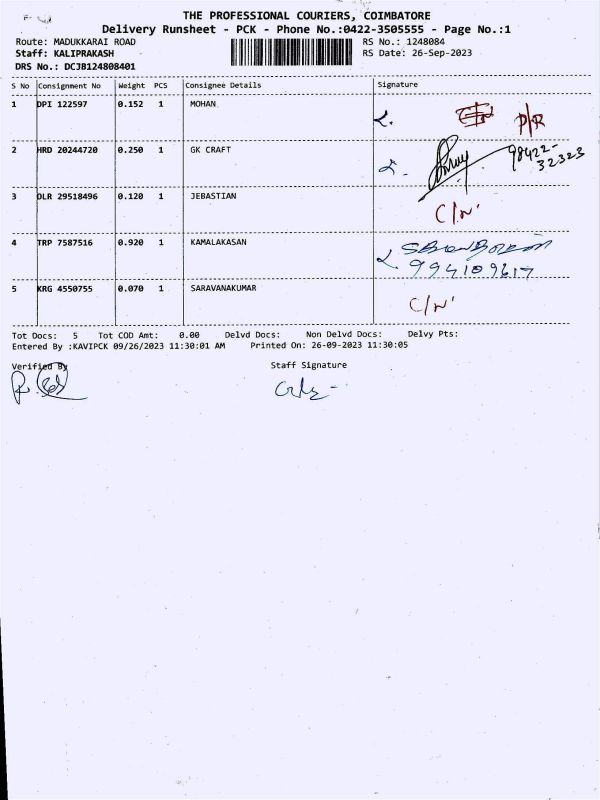 THE PROFESSIONAL COURIERS, COIMBATORE
Delivery Runsheet - PCK - Phone No.:0422-3505555 - Page No.:1
Route: MADUKKARAI ROAD RS No.: 1248084
Staff: KALIPRAKASH RS Date: 26-Sep-2023
DRS No.: DCJB124808401
S No Consignment No Weight PCS Consignee Details Signature
1 DPI 122597 0.152 1 MOHAN P/R
2 HRD 20244720 0.250 1 GK CRAFT 98422-
32323
3 DLR 29518496 0.120 1 JEBASTIAN C/N'
4 TRP 7587516 0.920 1 KAMALAKASAN
994109617
5 KRG 4550755 0.070 1 SARAVANAKUMAR C/N'
Tot Docs: 5 Tot COD Amt: 0.00 Delvd Docs: Non Delvd Docs: Delvy Pts:
Entered By :KAVIPCK 09/26/2023 11:30:01 AM Printed On: 26-09-2023 11:30:05
Verified By Staff Signature